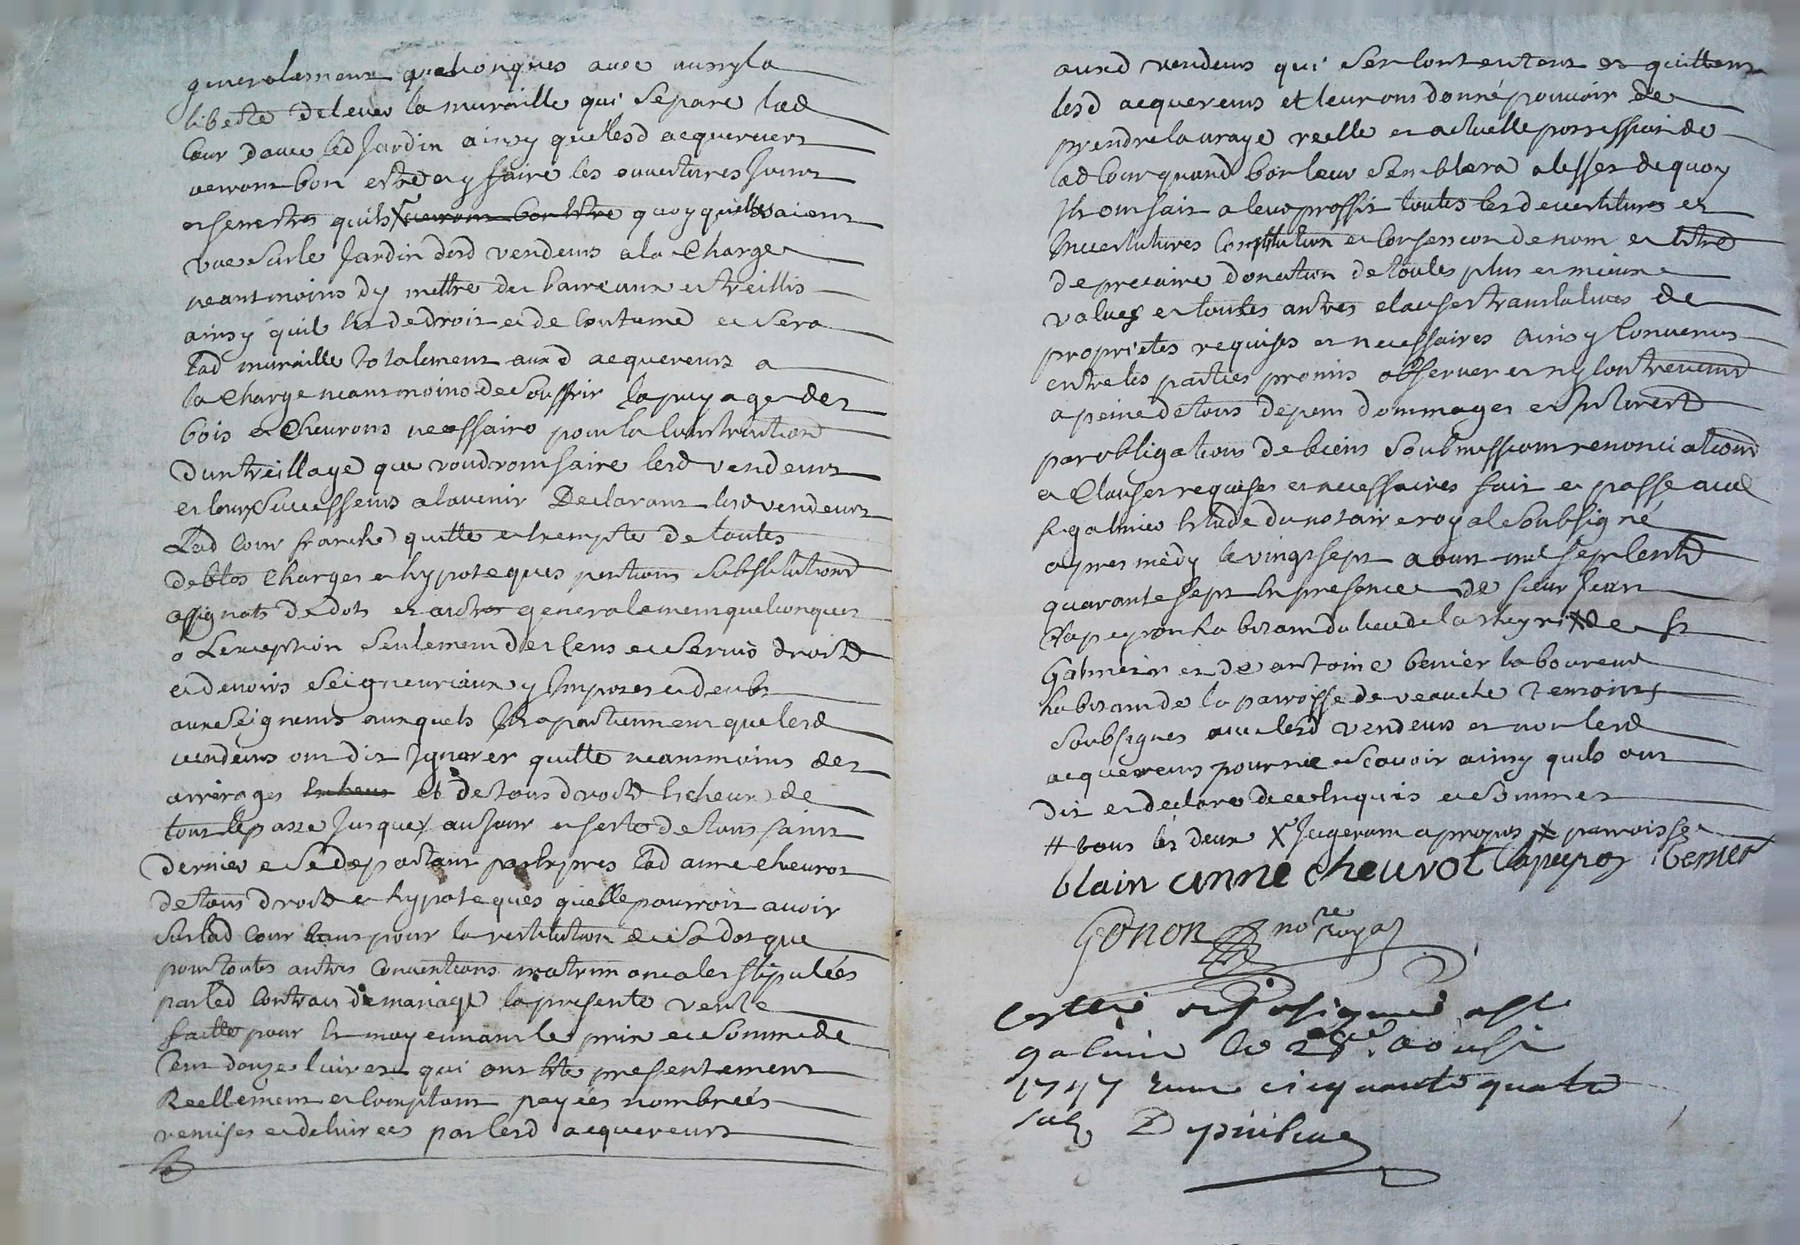 generalement quelconques avec aussy la
liberté de lever la muraille qui separe lad
cour davec led Jardin ainsy quelesd acquereurs
verront bon estre et y faire les ouvertures
et fenestres quils verront bon estre quoy quelles aient
vue sur le Jardin desd vendeurs a la charge
neantmoins dy mettre des barreaux et treillis
ainsy quil est de droit et de coutume et sera
lad muraille totalement auxd acquereurs a
la charge neantmoins de souffrir lapuyage des
bois et cheurons necessaire pour la construction
dun treillage que voudront faire lesd vendeurs
et leurs successeurs alavenir Declarant lesd vendeurs
Lad cour franche quitte et exempte de toutes
debtes charges et hypoteques pentions substitutions
assignats de dots et autres generalement quelconques
a Lexception seulement des cens et servis droits
et devoirs seigneuriaux y Imposes et deubs
aux seigneurs auxquels Ils apartiennent que lesd
vendeurs ont dit Ignorer quitte neantmoins des
arrerages et de tous droits echeus de
tout le passé Jusques au Jour et feste de tous saints
dernier et se departant par Expres Lad anne cheurot
de tous droits et hypoteques quelle pourroit avoir
sur lad cour tant pour la restitution de sa dot que
pour toutes autres conventions matrimonialles stipulées
par led contrat de mariage la presente vente
faitte pour et moyennant le prix et somme de
cent douze livres qui ont ete presentement
Reellement et comptant payées nombrées
remises et delivrees par lesd acquereurs
auxd vendeurs qui sen contentent et quittent
lesd acquereurs et leur ont donné pouvoir de
prendre la vraye reelle et actuelle possession de
lad cour quand bon leur semblera a lesfet de quoy
Ils ont fait a leur proffit toutes les devestitures et
Investitures constitution et de nom et titre
de precaire donation de toutes plus et mieux
values et toutes autres clauses translatives de
proprietes requises et necessaires ainsy convenus
entre les parties promis observer et ny contrevenir
a peine de tous depens dommages et Interests
par obligations de biens soubmissions renonciations
et clauses requises et necessaires fait et passé aud
st galmier Etude du notaire royal soubsigné
apres midy le vingt sept aoust mil sept cents
quarante sept En presence de sieur Jean
Lapeyre habitant du lieu de la de st
Galmier et de antoine benier laboureur
habitant de la parroisse de veauche temoins
soubsignes avec lesd vendeurs et non lesd
acquereurs pour ne scavoir ainsy quils ont
dit et declaré de ce Enquis et sommes
# tous les deux X Jugeront apropos X parroisse
blain anne cheurot benier
Gonon nore Royal
a st
galmier le aoust
1747 cinquante quatre
sols